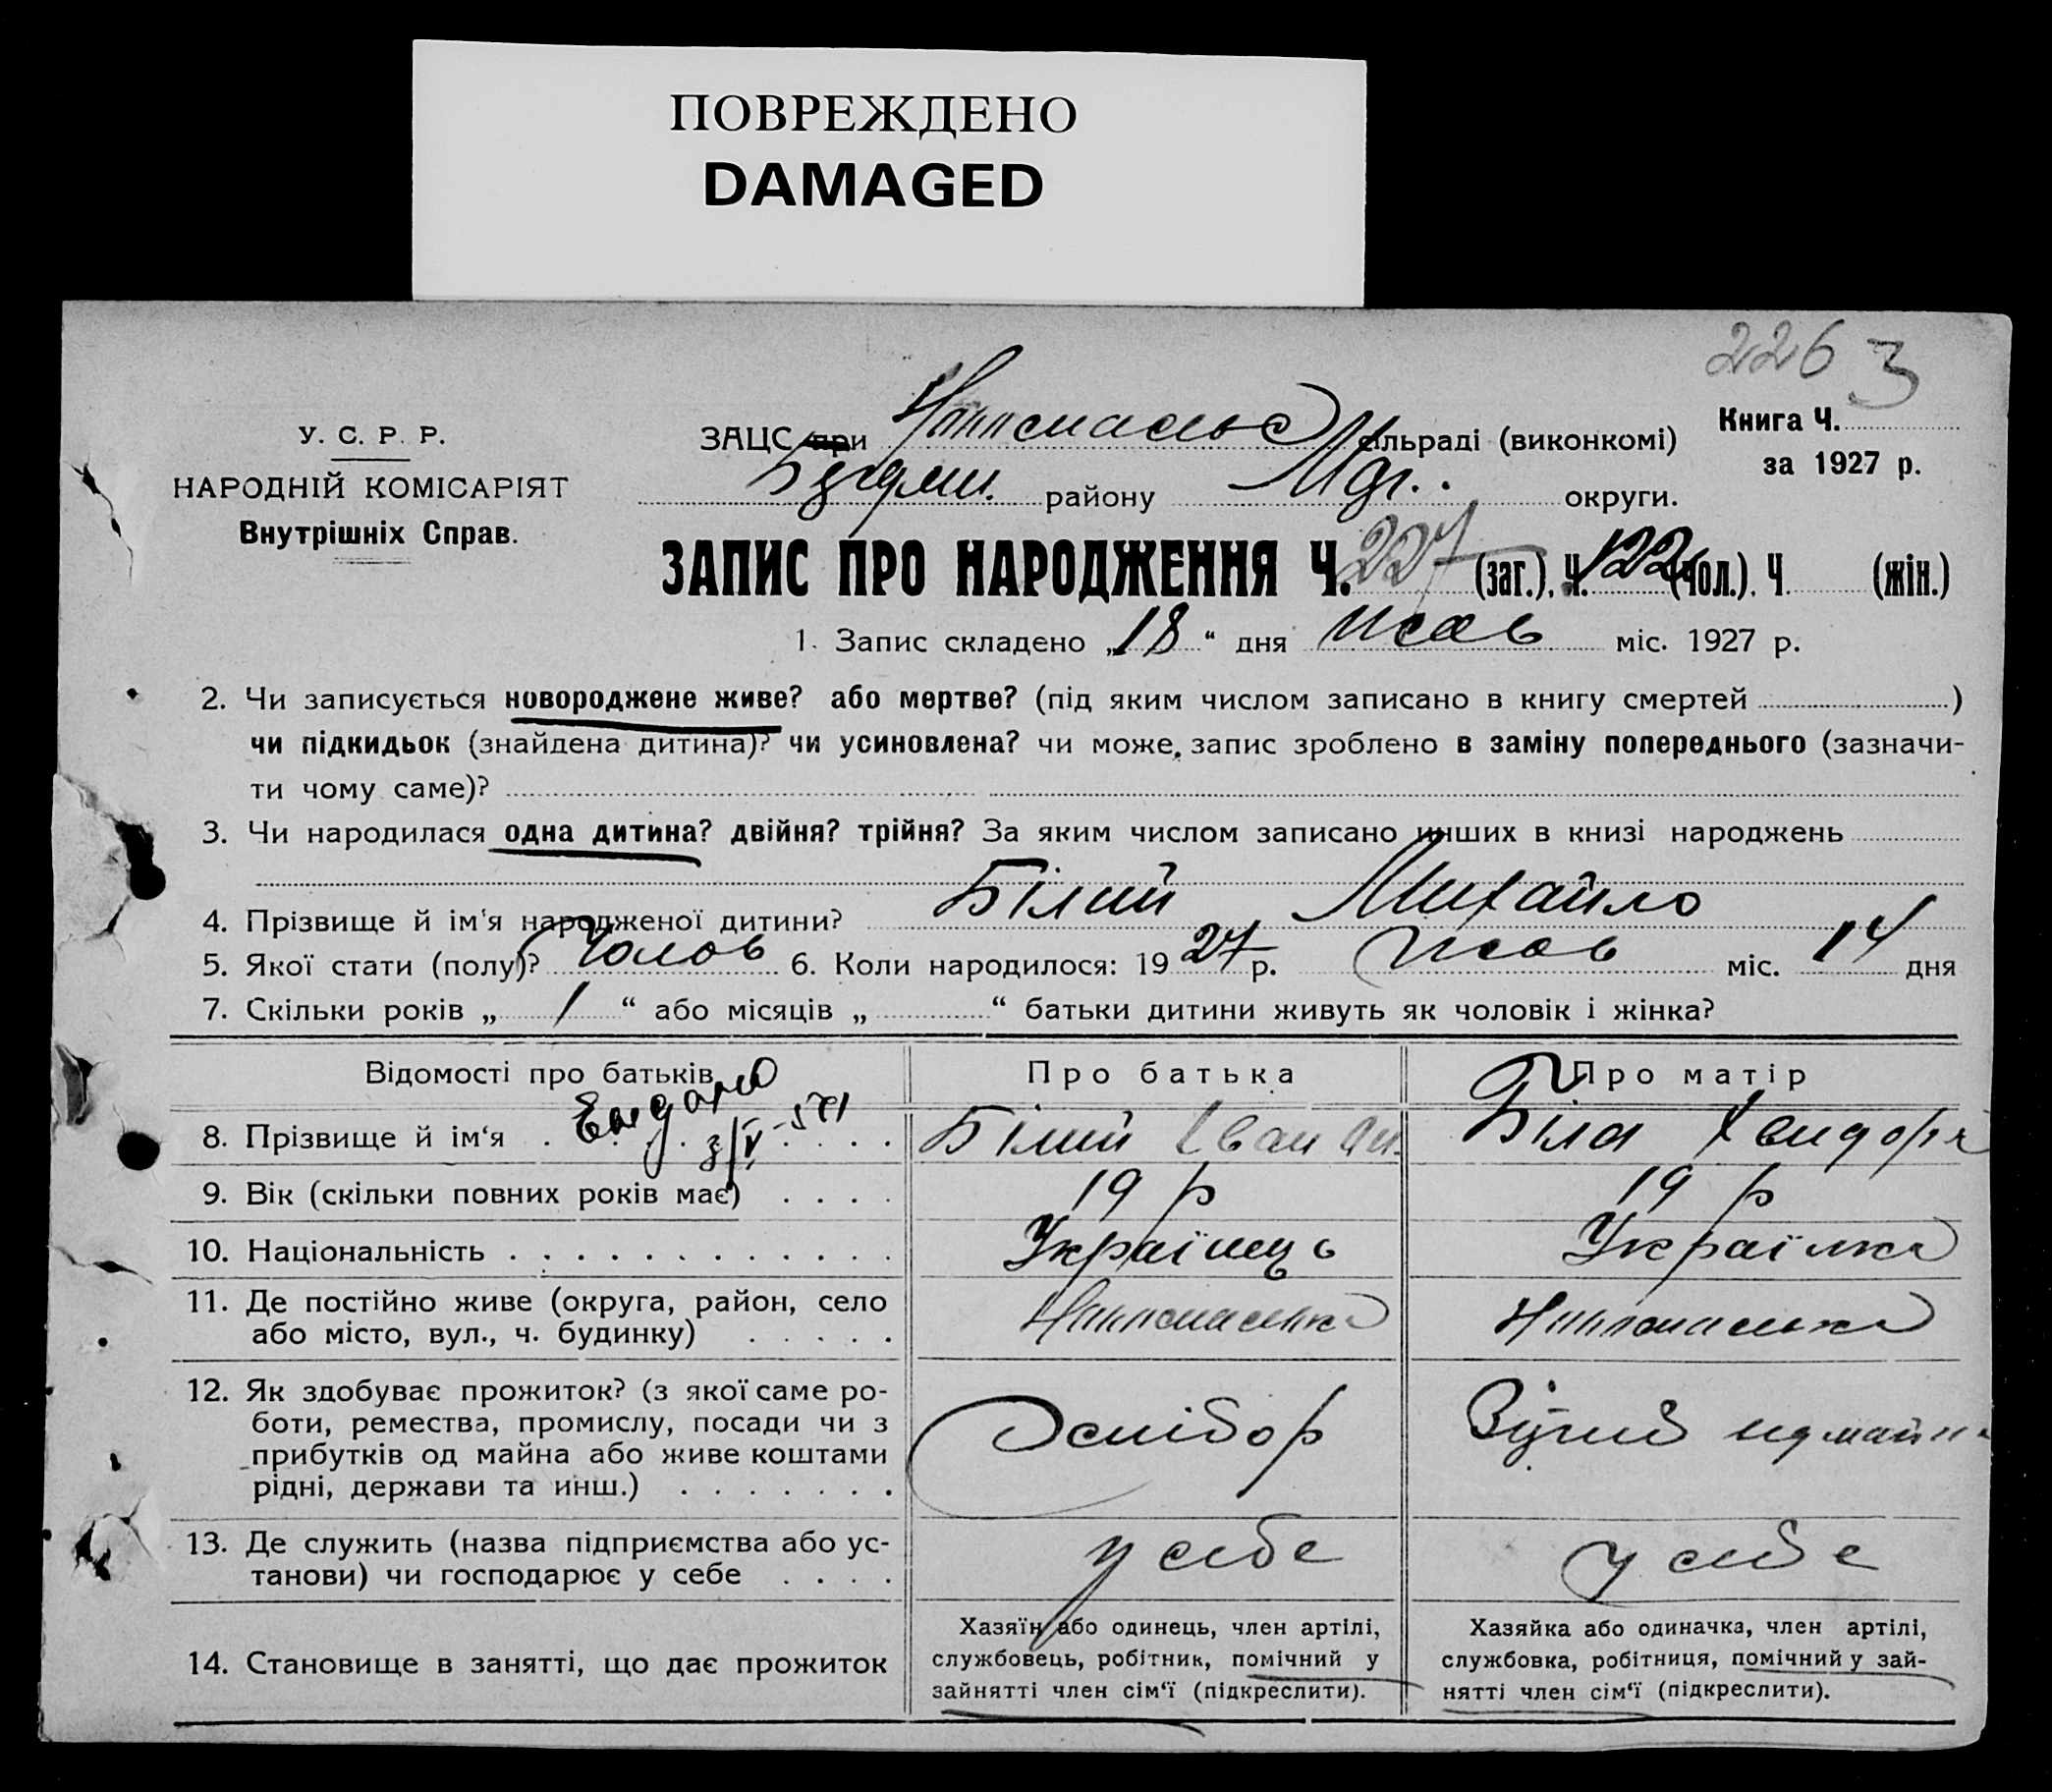 ПОВРЕЖДЕНО
DAMAGED
226 3
У. С. Р. Р.
НАРОДНІЙ КОМІСАРІЯТ
Внутрішніх Справ.
ЗАЦС при сільраді (виконкомі)
району округи.
Книга Ч.
за 1927 р.
ЗАПИС ПРО НАРОДЖЕННЯ Ч. 227 (заг.). Ч. 122 (чол.). Ч. (жін.)
1. Запис складено „18“ дня міс. 1927 р.
2. Чи записується новороджене живе? або мертве? (під яким числом записано в книгу смертей )
чи підкидьок (знайдена дитина)? чи усиновлена? чи може, запис зроблено в заміну попереднього (зазначи-
ти чому саме)?
3. Чи народилася одна дитина? двійня? трійня? За яким числом записано инших в книзі народжень
4. Прізвище й ім‘я народженої дитини? Білий Михайло
5. Якої стати (полу)? Чолов 6. Коли народилося: 1927 р. міс. 14 дня
7. Скільки років „ 1 “ або місяців „ “ батьки дитини живуть як чоловік і жінка?
Відомості про батьків Про батька Про матір
8. Прізвище й ім‘я Білий Іван Біла
9. Вік (скільки повних років має) 19 р 19 р
10. Національність Українець Українка
11. Де постійно живе (округа, район, село
або місто, вул., ч. будинку)
12. Як здобуває прожиток? (з якої саме ро-
боти, ремества, промислу, посади чи з
прибутків од майна або живе коштами
рідні, держави та инш.)
13. Де служить (назва підприємства або ус-
танови) чи господарює у себе у себе у себе
14. Становище в занятті, що дає прожиток
Хазяїн або одинець, член артілі,
службовець, робітник, помічний у
зайнятті член сім‘ї (підкреслити).
Хазяйка або одиначка, член артілі,
службовка, робітниця, помічний у зай-
нятті член сім‘ї (підкреслити).